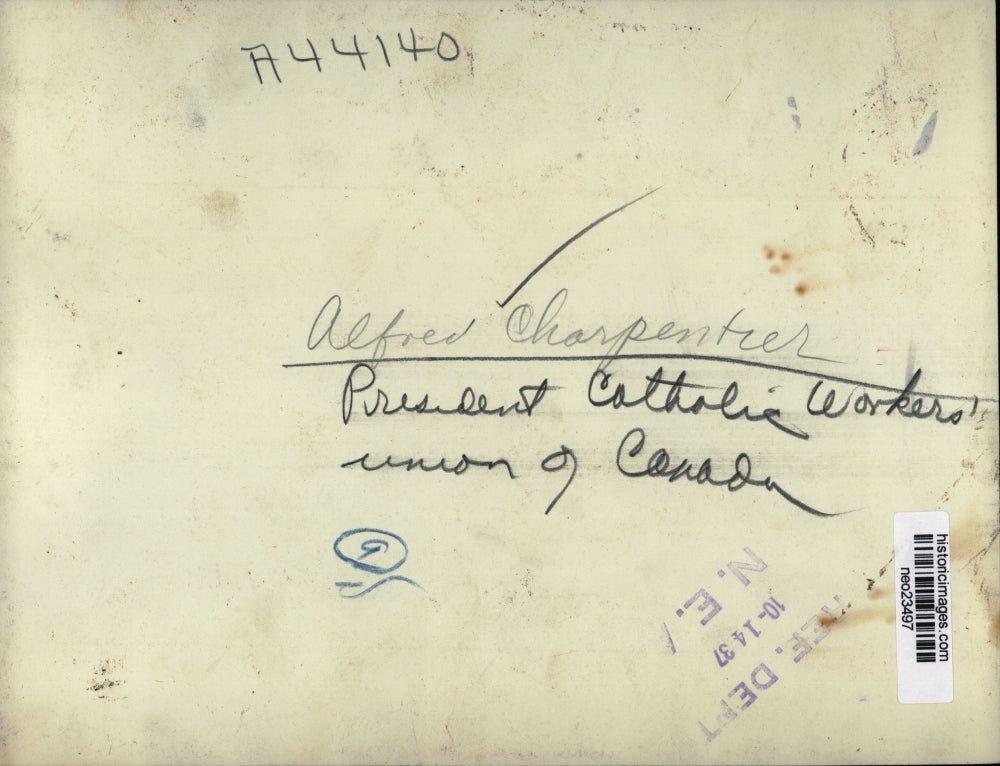 A44140
Alfred Charpentier
President Catholic Workers'
union of Canada
2
N. E. A
10-14 37
REF. DEPT
historicimages.com
neo23497